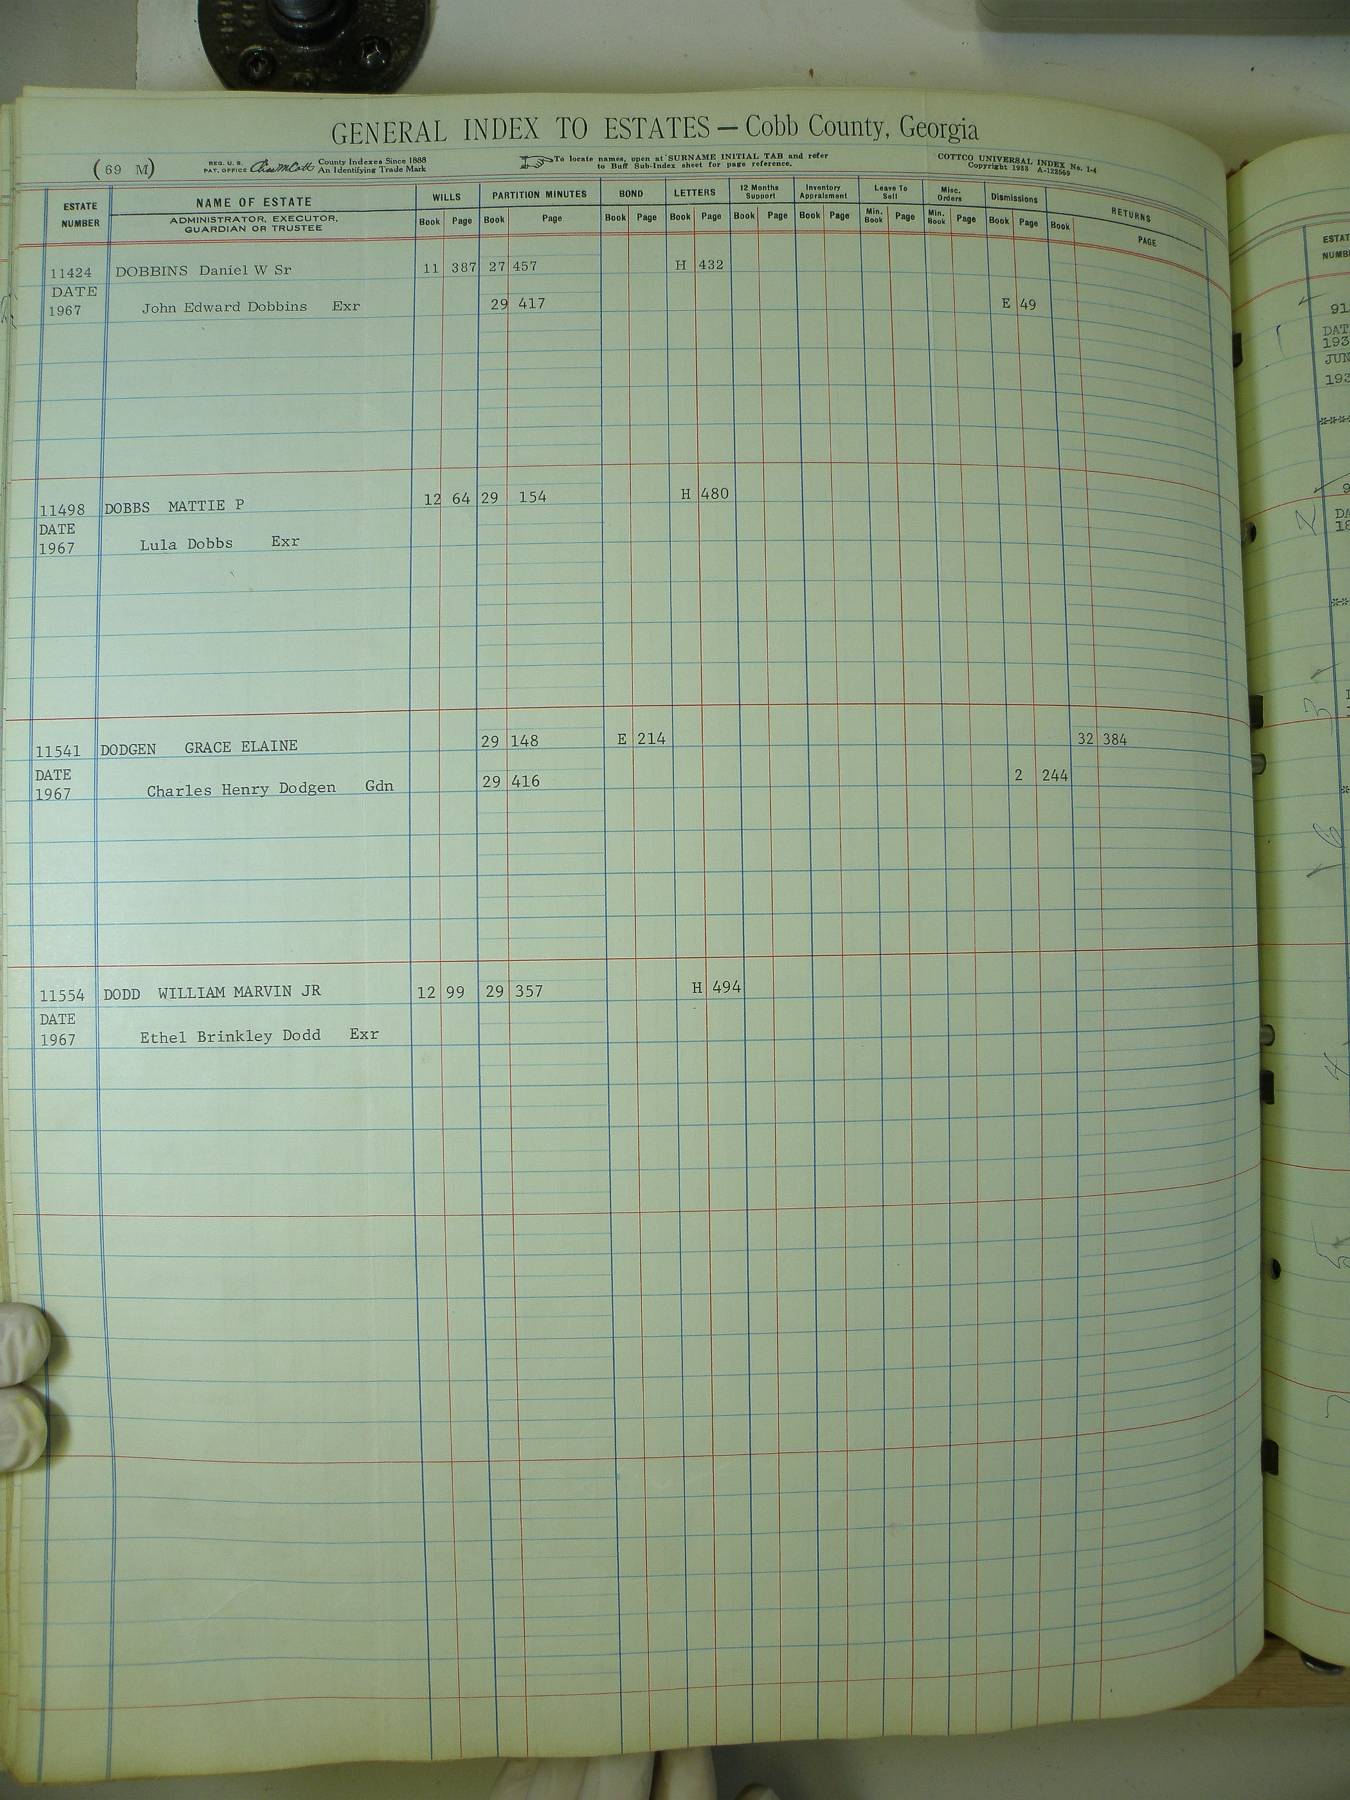 GENERAL INDEX TO ESTATES — Cobb County, Georgia
(69 M)
REG. U. S. PAT. OFFICE County Indexes Since 1888 An Identifying Trade Mark
To locate names, open at SURNAME INITIAL TAB and refer to Buff Sub-Index sheet for page reference.
COTTCO UNIVERSAL INDEX No. 1-4
Copyright 1933 A-122569
ESTATE NUMBER NAME OF ESTATE WILLS PARTITION MINUTES BOND LETTERS 12 Months Support Inventory Appraisment Leave To Sell Misc. Orders Dismissions RETURNS
ADMINISTRATOR, EXECUTOR, GUARDIAN OR TRUSTEE Book Page Book Page Book Page Book Page Book Page Book Page Min. Book Page Min. Book Page Book Page Book PAGE
11424 DOBBINS Daniel W Sr 11 387 27 457 H 432
DATE
1967 John Edward Dobbins Exr 29 417 E 49
11498 DOBBS MATTIE P 12 64 29 154 H 480
DATE
1967 Lula Dobbs Exr
11541 DODGEN GRACE ELAINE 29 148 E 214 32 384
DATE
1967 Charles Henry Dodgen Gdn 29 416 2 244
11554 DODD WILLIAM MARVIN JR 12 99 29 357 H 494
DATE
1967 Ethel Brinkley Dodd Exr